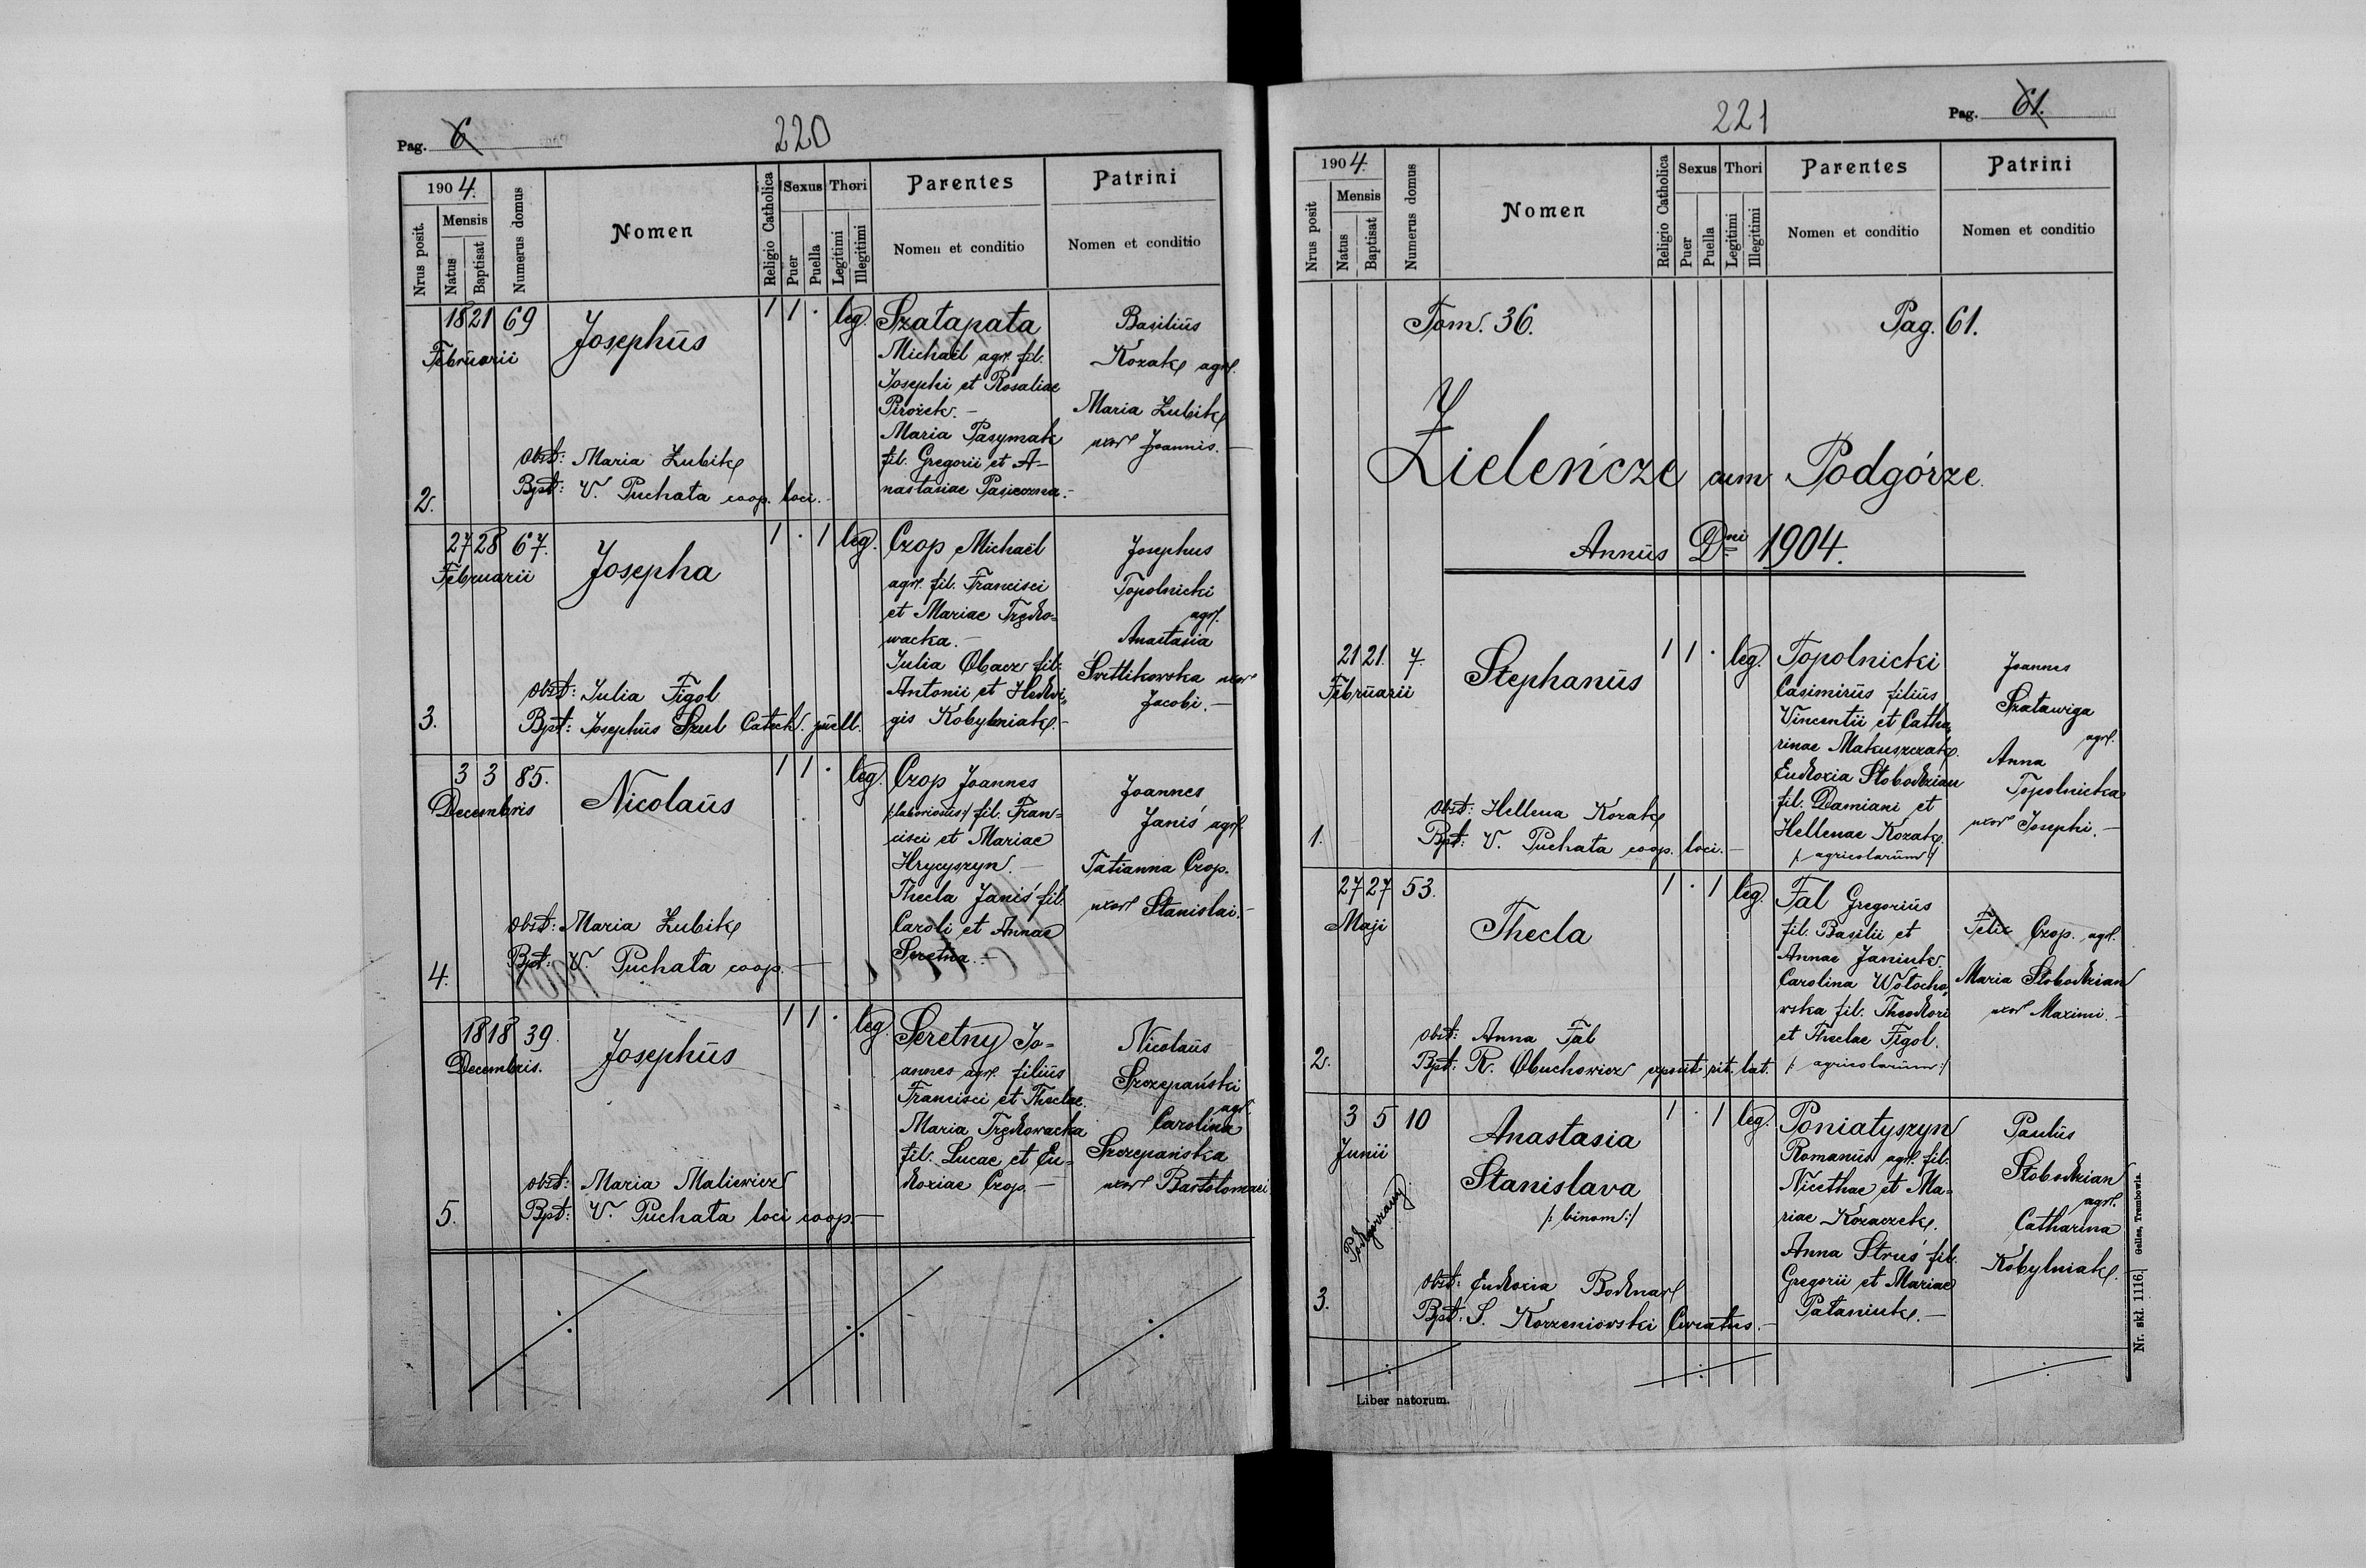 Pag. 6
220
1904.
Nrus posit.
Mensis
Natus
Baptisat
Numerus domus
Nomen
Religio Catholica
Sexus
Puer
Puella
Thori
Legitimi
Illegitimi
Parentes
Nomen et conditio
Patrini
Nomen et conditio
18 21 69
Februarii
Josephus
1 1 · leg.
Szałapata
Michaël agr. fil.
Josephi et Rosaliae
Pirożek. -
Maria Pasymak
fil. Gregorii et A-
nastasiae Pasieczna. -
Basilius
Kozak agr.
Maria Zubik
uxor Joannis. -
Obst: Maria Zubik
Bpt: V. Puchała coop. loci. -
2.
27 28 67.
Februarii
Josepha
1 · 1 leg.
Czop Michaël
agr. fil. Francisci
et Mariae Trędo=
wacka. -
Julia Obacz fil.
Antonii et Hedvi=
gis Kobylniak. -
Josephus
Topolnicki
agr.
Anastasia
Svitlikowska uxor
Jacobi. -
Obst: Julia Figol
Bpt: Josephus Szul Catech. puell.
3.
3 3 85.
Decembris
Nicolaus
1 1 · leg.
Czop Joannes
/:laboriosus:/ fil. Fran=
cisci et Mariae
Hrycyszyn. -
Thecla Janiś fil.
Caroli et Annae
Seretna. -
Joannes
Janiś agr.
Tatianna Czop.
uxor Stanislai. -
Obst: Maria Zubik
Bpt: V. Puchała coop. -
4.
18 18 39.
Decembris.
Josephus
1 1 · leg.
Seretny Jo=
annes agr. filius
Francisci et Theclae.
Maria Trędowacka
fil. Lucae et Eu=
doxiae Czop. -
Nicolaus
Szczepański
agr.
Carolina
Szczepańska
uxor Bartolomaei
Obst: Maria Maliewicz
Bpt: V. Puchała loci coop. -
5.
221
Pag. 61.
1904.
Nrus posit
Mensis
Natus
Baptisat
Numerus domus
Nomen
Religio Catholica
Sexus
Puer
Puella
Thori
Legitimi
Illegitimi
Parentes
Nomen et conditio
Patrini
Nomen et conditio
Tom. 36.
Pag. 61.
Zieleńcze cum Podgórze.
Annus Dni 1904.
21 21. 7.
Februarii
Stephanus
1 1 · leg.
Topolnicki
Casimirus filius
Vincentii et Catha=
rinae Makuszczak.
Eudoxia Słobodzian
fil. Damiani et
Hellenae Kozak.
/: agricolarum:/
Joannes
Szatawiga
agr.
Anna
Topolnicka
uxor Josephi. -
Obst: Hellena Kozak
Bpt: V. Puchała coop. loci. -
1.
27 27 53.
Maji
Thecla
1 · 1 leg.
Fal Gregorius
fil. Basilii et
Annae Janiuk.
Carolina Wołocho=
wska fil. Theodori
et Theclae Figol.
/: agricolarum:/
Felix Czop. agr.
Maria Słobodzian
uxor Maximi. -
Obst: Anna Fal
Bpt: R. Obuchowicz exposit rit. lat.
2.
3 5 10
Junii
Anastasia
Stanislava
/: binom:/
1 · 1 leg.
Poniatyszyn
Romanus agr. fil.
Nicethae et Ma=
riae Kozaczek.
Anna Struś fil.
Gregorii et Mariae
Pałaniuk. -
Paulus
Słobodzian
agr.
Catharina
Kobylniak.
Obst: Eudocia Bodnar
Bpt: S. Korzeniowski Curatus. -
3.
Liber natorum.
Nr. skł. 1116. Gelles, Trembowla.